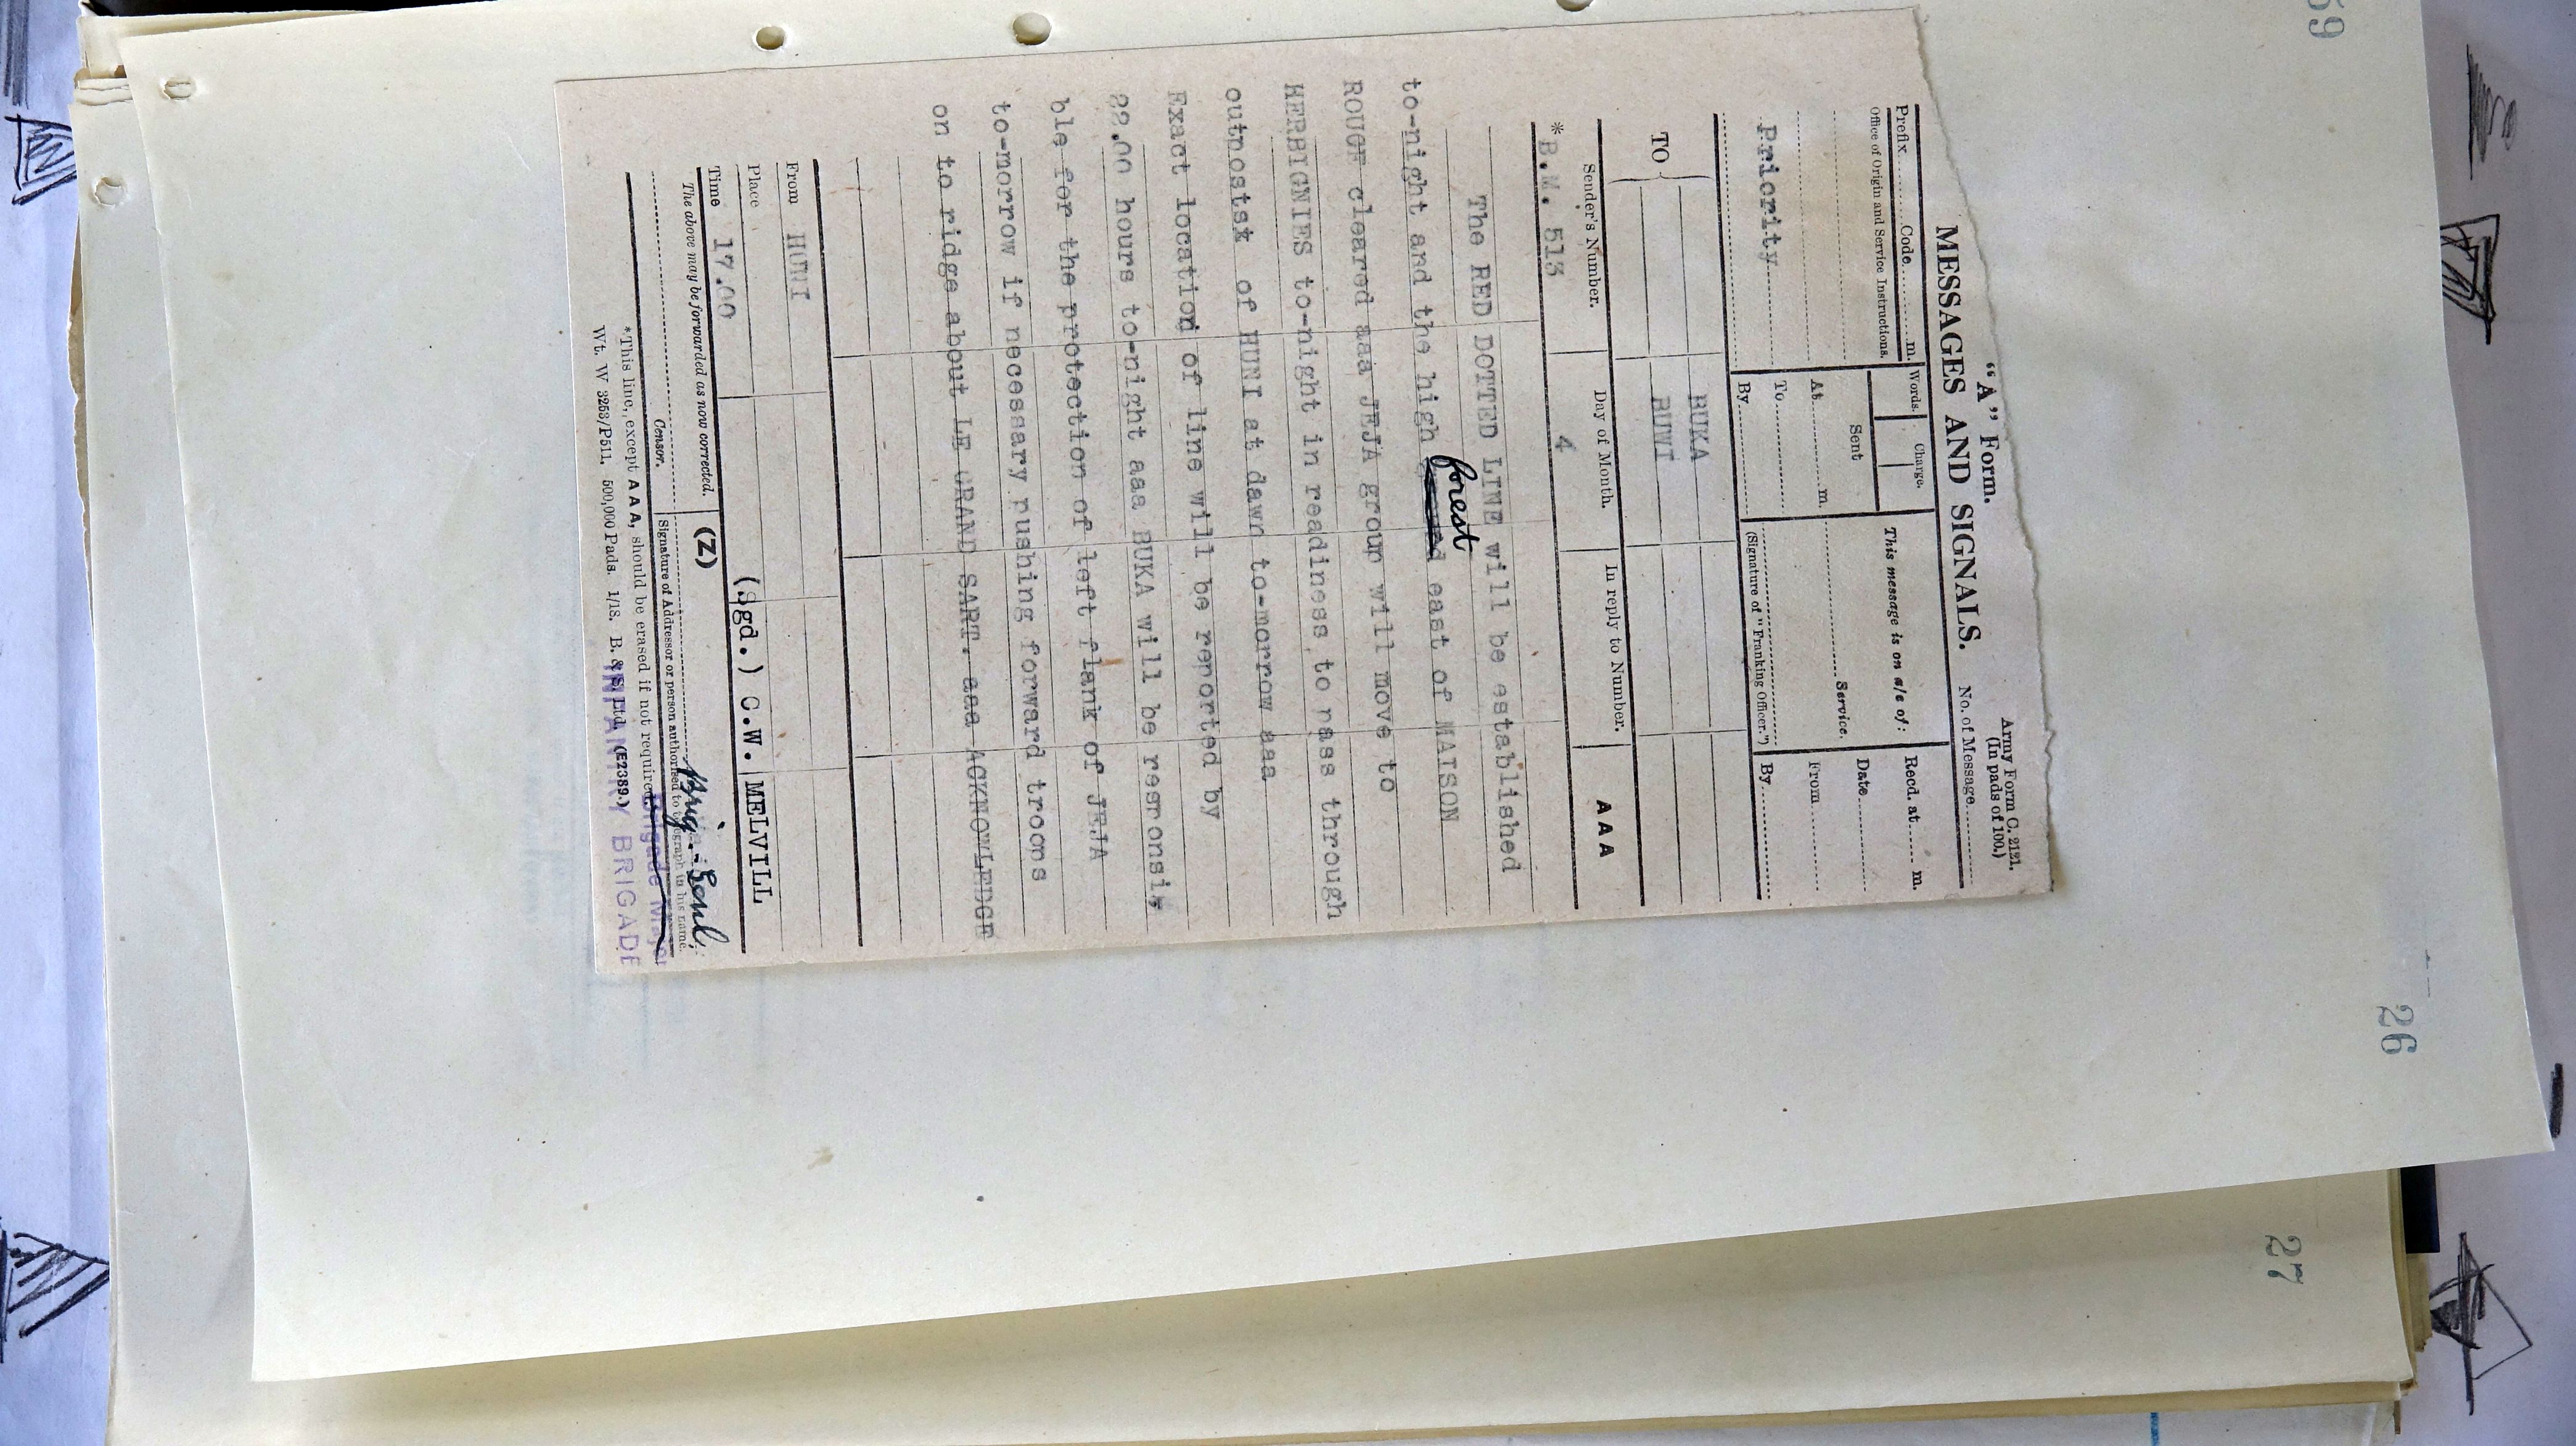 59
26
27
"A" Form.
Army Form C. 2121.
(In pads of 100.)
MESSAGES AND SIGNALS.
No. of Message
Prefix Code m.
Words. Charge.
This message is on a/c of:
Recd. at m.
Office of Origin and Service Instructions.
Sent
Date
Priority
At m.
Service.
From
To
By
(Signature of "Franking Officer.")
By
TO
BUKA
BUWI
Sender's Number.
Day of Month.
In reply to Number.
AAA
*B.M. 513
4
The RED DOTTED LINE will be established
forest
to-night and the high east of MAISON
ROUGE cleared aaa JEJA group will move to
HERBIGNIES to-night in readiness to pass through
outpostsx of HUNI at dawn to-morrow aaa
Exact location of line will be reported by
22.00 hours to-night aaa BUKA will be responsi-
ble for the protection of left flank of JEJA
to-morrow if necessary pushing forward troops
on to ridge about LE GRAND SART. aaa ACKNOWLEDGE
From HUNI
Place
Time 17.00
(Sgd.) C.W. MELVILL
The above may be forwarded as now corrected.
(Z)
Brig.-Genl.
Censor.
Signature of Addressor or person authorised to telegraph in his name.
Brigade Major
*This line, except AAA, should be erased if not required.
INFANTRY BRIGADE
Wt. W 3253/P511. 500,000 Pads. 1/18. B. & S. Ltd. (E2389.)